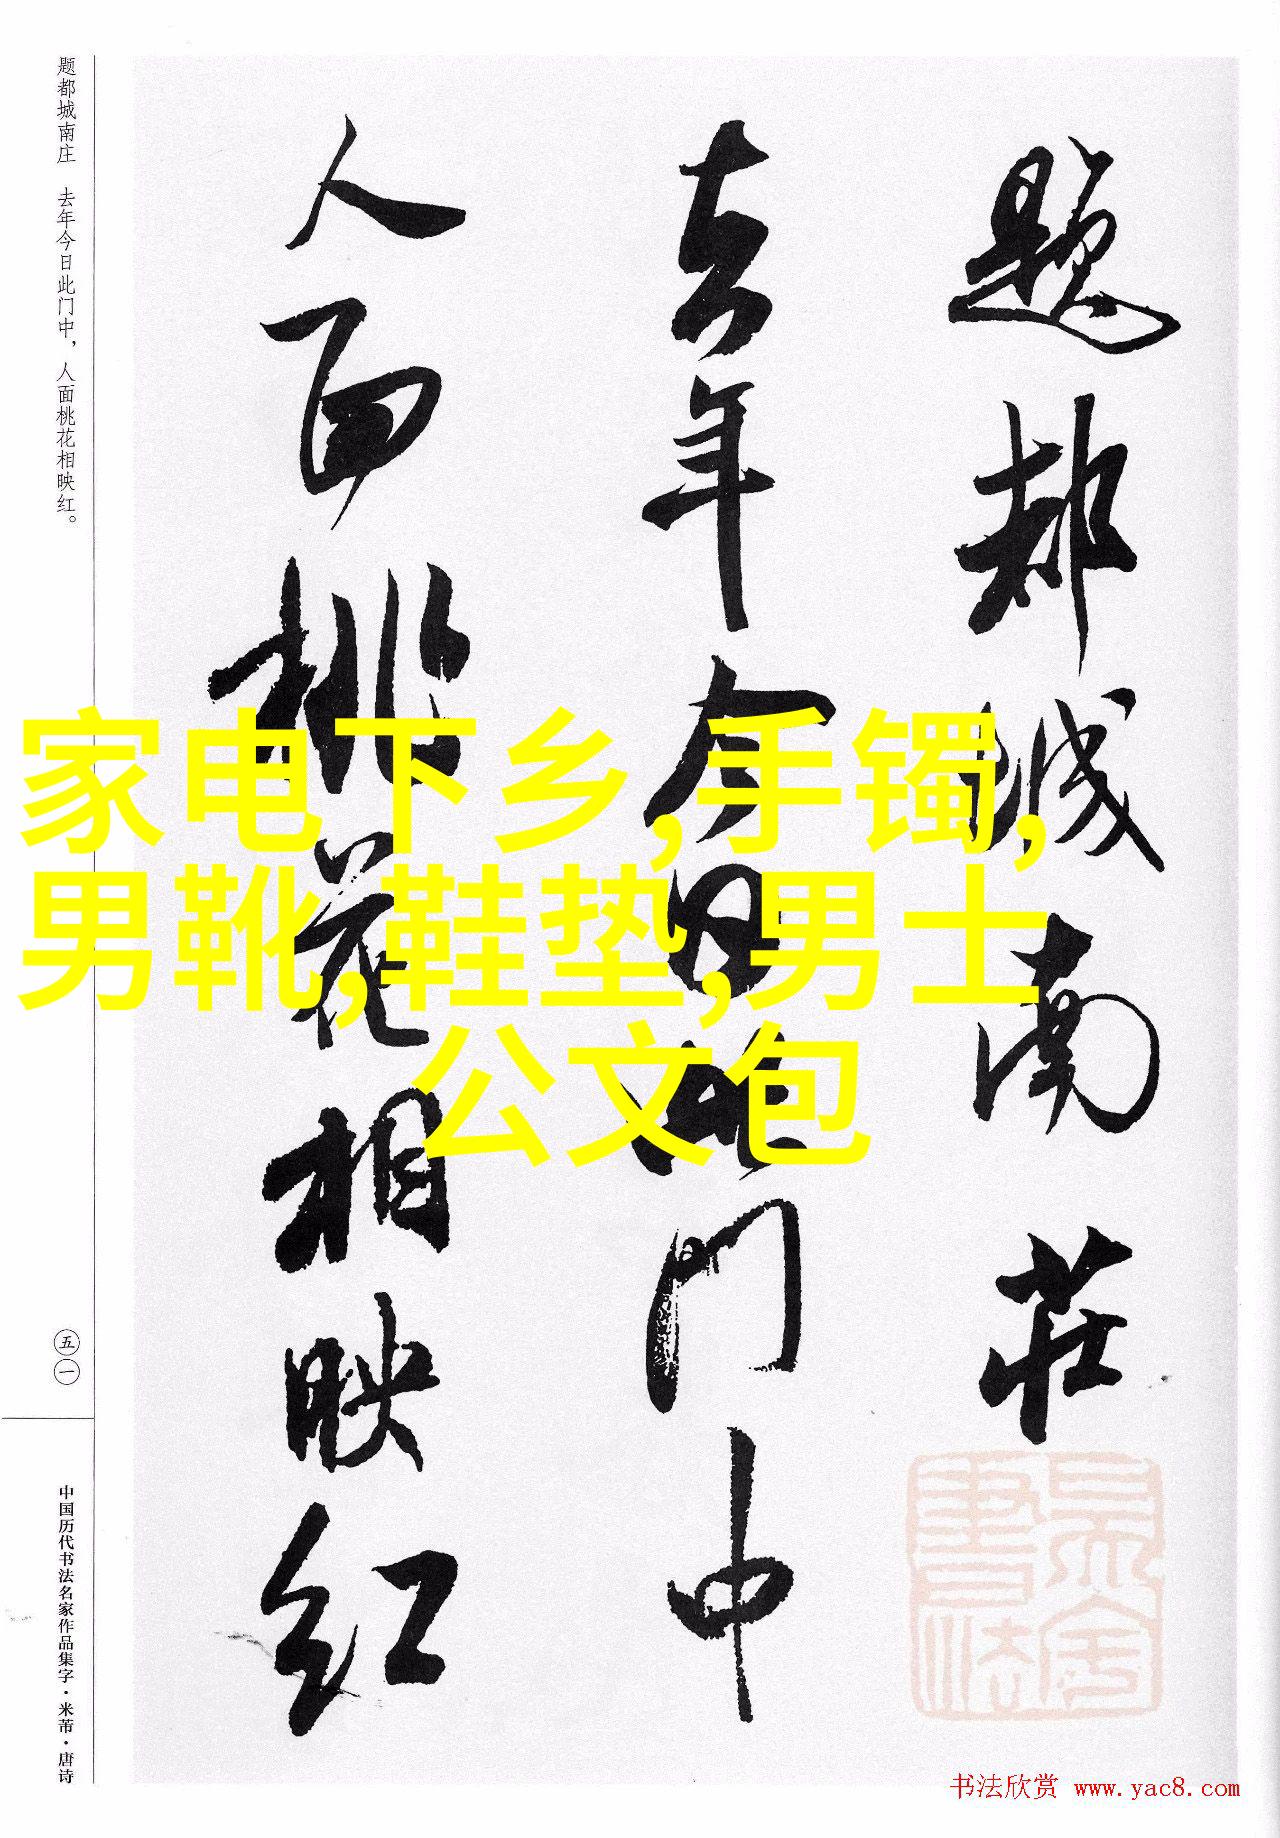 题都城南莊
去年今日此门中
人面桃花相映红
题都城南庄 去年今日此门中，人面桃花相映红。
五一
中国历代书法名家作品集字·米芾·唐诗
家电下乡,手镯,
男靴,鞋垫,男士
公文包
书法欣赏 www.yac8.com